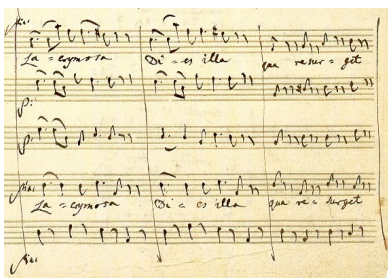 La = crymosa Di = es illa qua resur = get
La = crymosa Di = es illa qua re = surget